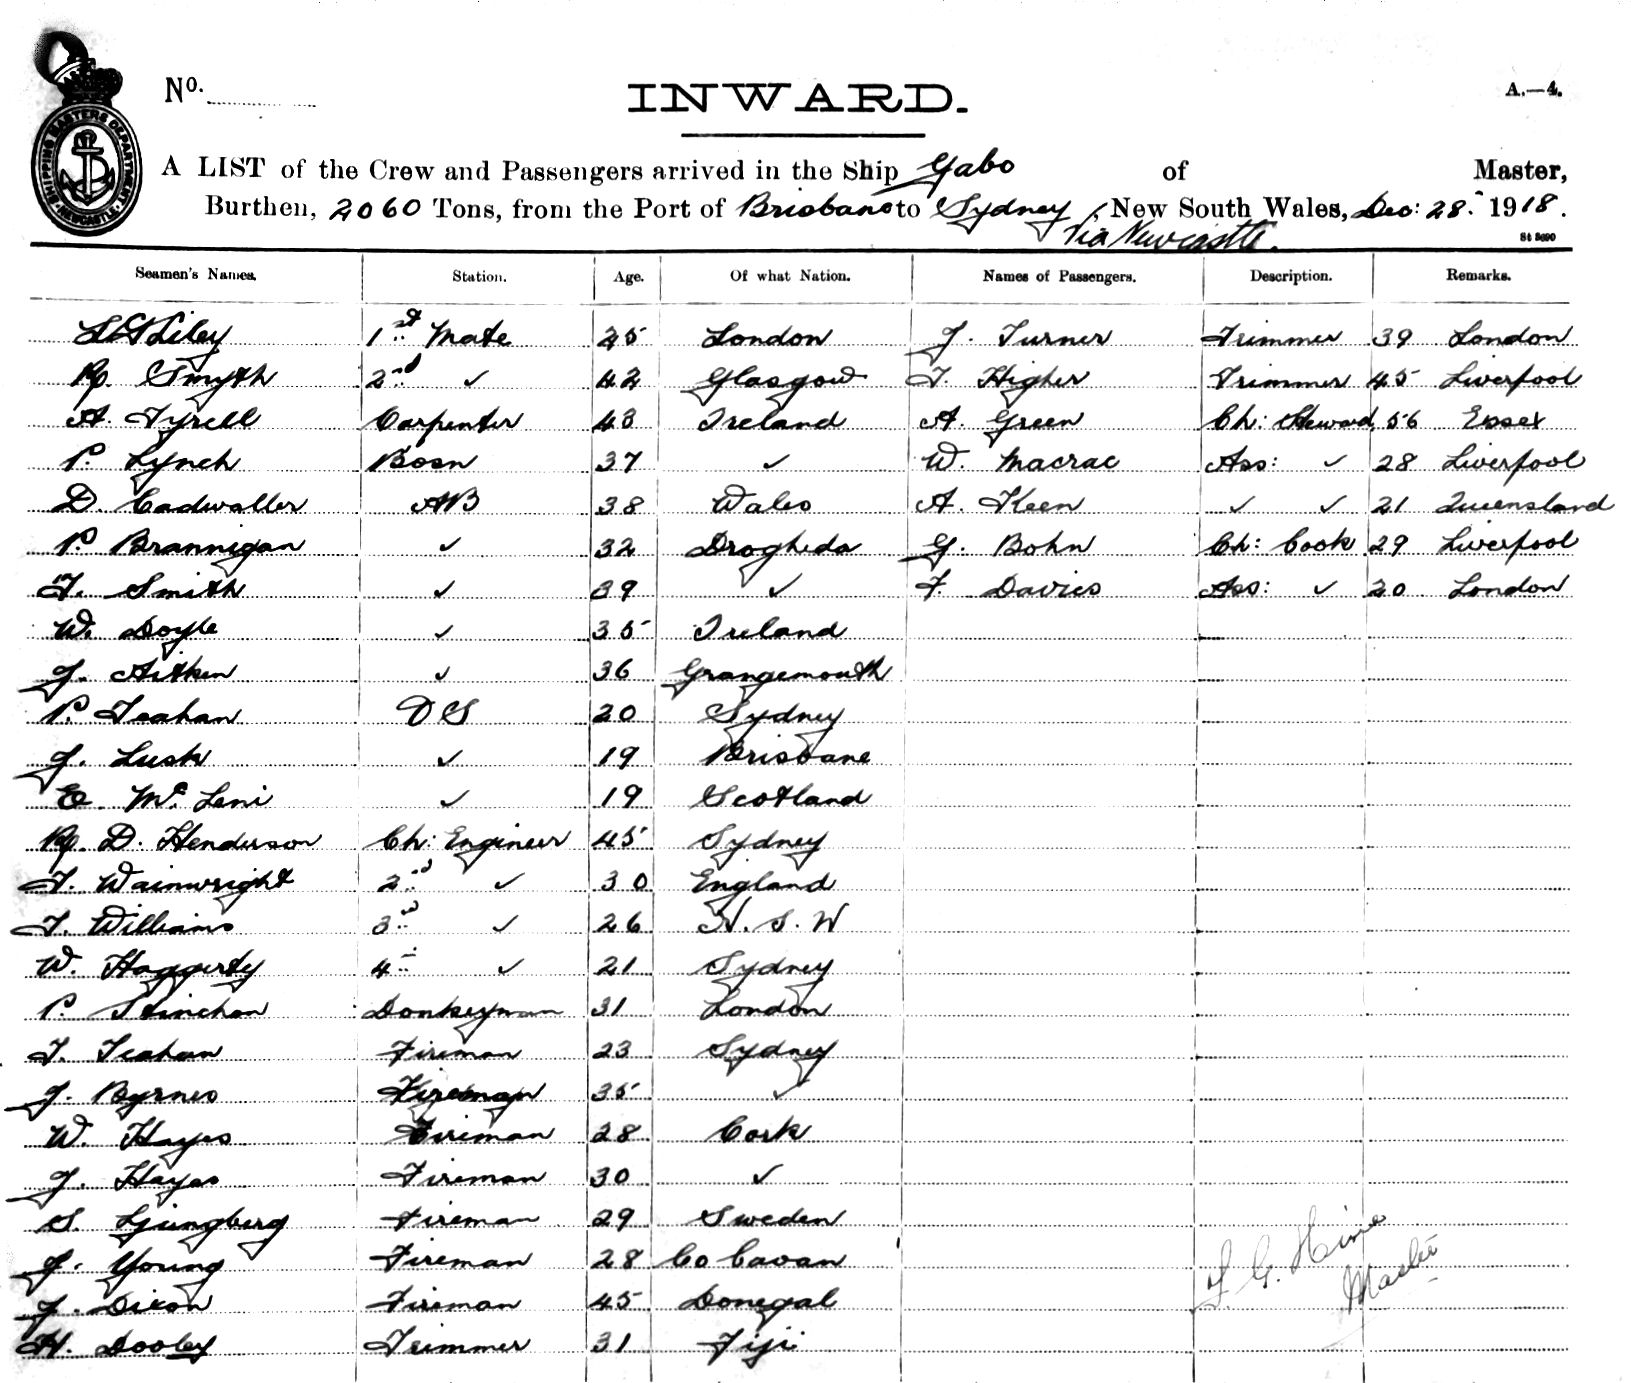 No.
INWARD.
A.—4.
SHIPPING MASTERS DEPARTMENT NEWCASTLE
A LIST of the Crew and Passengers arrived in the Ship Gabo of Master,
Burthen, 2060 Tons, from the Port of Brisbane to Sydney, New South Wales, Dec: 28. 1918.
Via Newcastle.
Seamen's Names. Station. Age. Of what Nation. Names of Passengers. Description. Remarks.
Liley 1st Mate 25 London J. Turner Trimmer 39 London
R. Smyth 2nd ✓ 42 Glasgow T. Higher Trimmer 45 Liverpool
A. Tyrell Carpenter 43 Ireland A. Green Ch: Steward 56 Essex
P. Lynch Bosn 37 ✓ W. Macrae Ass: ✓ 28 Liverpool
D. Cadwaller AB 38 Wales A. Keen ✓ ✓ 21 Queensland
P. Brannigan ✓ 32 Drogheda G. Bohn Ch: Cook 29 Liverpool
T. Smith ✓ 39 ✓ F. Davies Ass: ✓ 20 London
W. Doyle ✓ 35 Ireland
J. Aitken ✓ 36 Grangemouth
P. Teahan OS 20 Sydney
J. Lusk ✓ 19 Brisbane
E. Mc Leni ✓ 19 Scotland
R. D. Henderson Ch: Engineer 45 Sydney
T. Wainwright 2nd ✓ 30 England
T. Williams 3rd ✓ 26 N. S. W
W. Haggerty 4th ✓ 21 Sydney
P. Stinchon Donkeyman 31 London
T. Teahan Fireman 23 Sydney
J. Byrnes Fireman 35 ✓
W. Hayes Fireman 28 Cork
J. Hayes Fireman 30 ✓
S. Ljungberg Fireman 29 Sweden
J. Young Fireman 28 Co Cavan
J. Dixon Fireman 45 Donegal
H. Dooley Trimmer 31 Fiji
G. Hine
Master